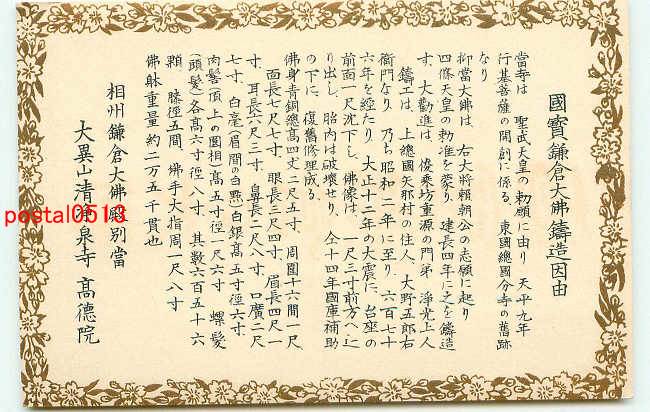 國寶鎌倉大佛鑄造因由
當寺は 聖武天皇の勅願に由り 天平九年
行基菩薩の開創に係る、東國總國分寺の舊跡
なり
抑當大佛は、右大將賴朝公の志願に起り
四條天皇の勅准を蒙り、建長四年に之を鑄造
す、大勸進は、俊乘坊重源の門弟、淨光上人
鑄工は、上總國矢那村の住人、大野五郎右
衞門なり、乃ち昭和二年に至り、六百七十
六年を經たり、大正十二年の大震に、台座の
前面一尺沈下し、佛像は、一尺三寸前方へ辷
り出し、胎内は破壞せり、仝十四年國庫補助
の下に、復舊修理成る、
佛身青銅總高四丈二尺五寸、周圍十六間一尺、
面長七尺七寸、眼長三尺四寸、眉長四尺一
寸、耳長六尺三寸、鼻長二尺八寸、口廣二尺
七寸、白毫(眉間の白點)白銀高五寸徑六寸、
肉髻(頂上の圓相)高五寸徑一尺六寸 螺髮
(頭髮)各高六寸徑八寸、其數六百五十六
顆、膝徑五間、佛手大指周一尺八寸
佛躰重量約二万五千貫也
相州鎌倉大佛殿別當
大異山清淨泉寺 高德院
postal0513